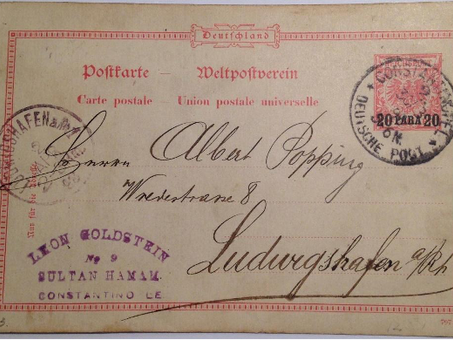 Deutschland
Postkarte — Weltpostverein
Carte postale — Union postale universelle
20 PARA 20
CONSTANTINOPEL
DEUTSCHE POST
Herrn Albert Popping
Wredestrasse 8
Ludwigshafen a/Rh
LEON GOLDSTEIN
No 9
SULTAN HAMAM
CONSTANTINO LE